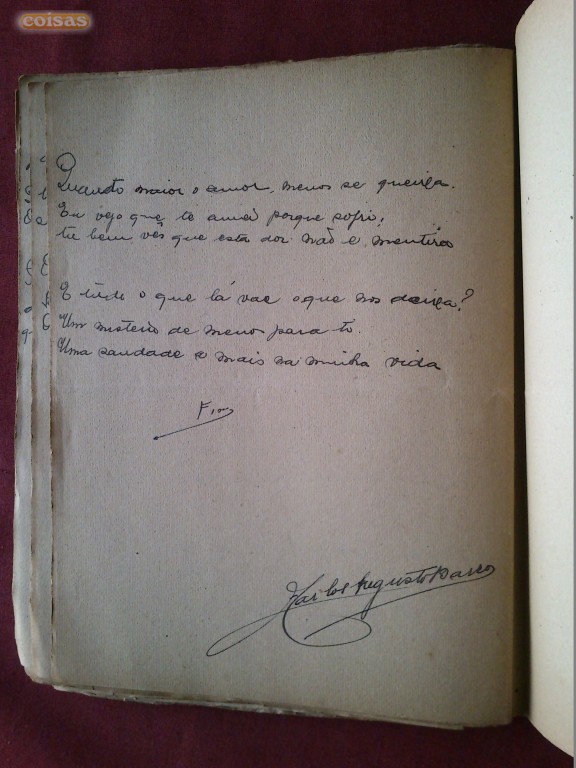 coisas
Quanto maior o amor, menos se queixa.
Eu vejo que te amei porque sofri;
tu bem vês que esta dor não é mentira
E tudo o que lá vae o que nos deixa?
Um misterio de menos para ti.
Uma saudade a mais na minha vida
Fim
Carlos Augusto